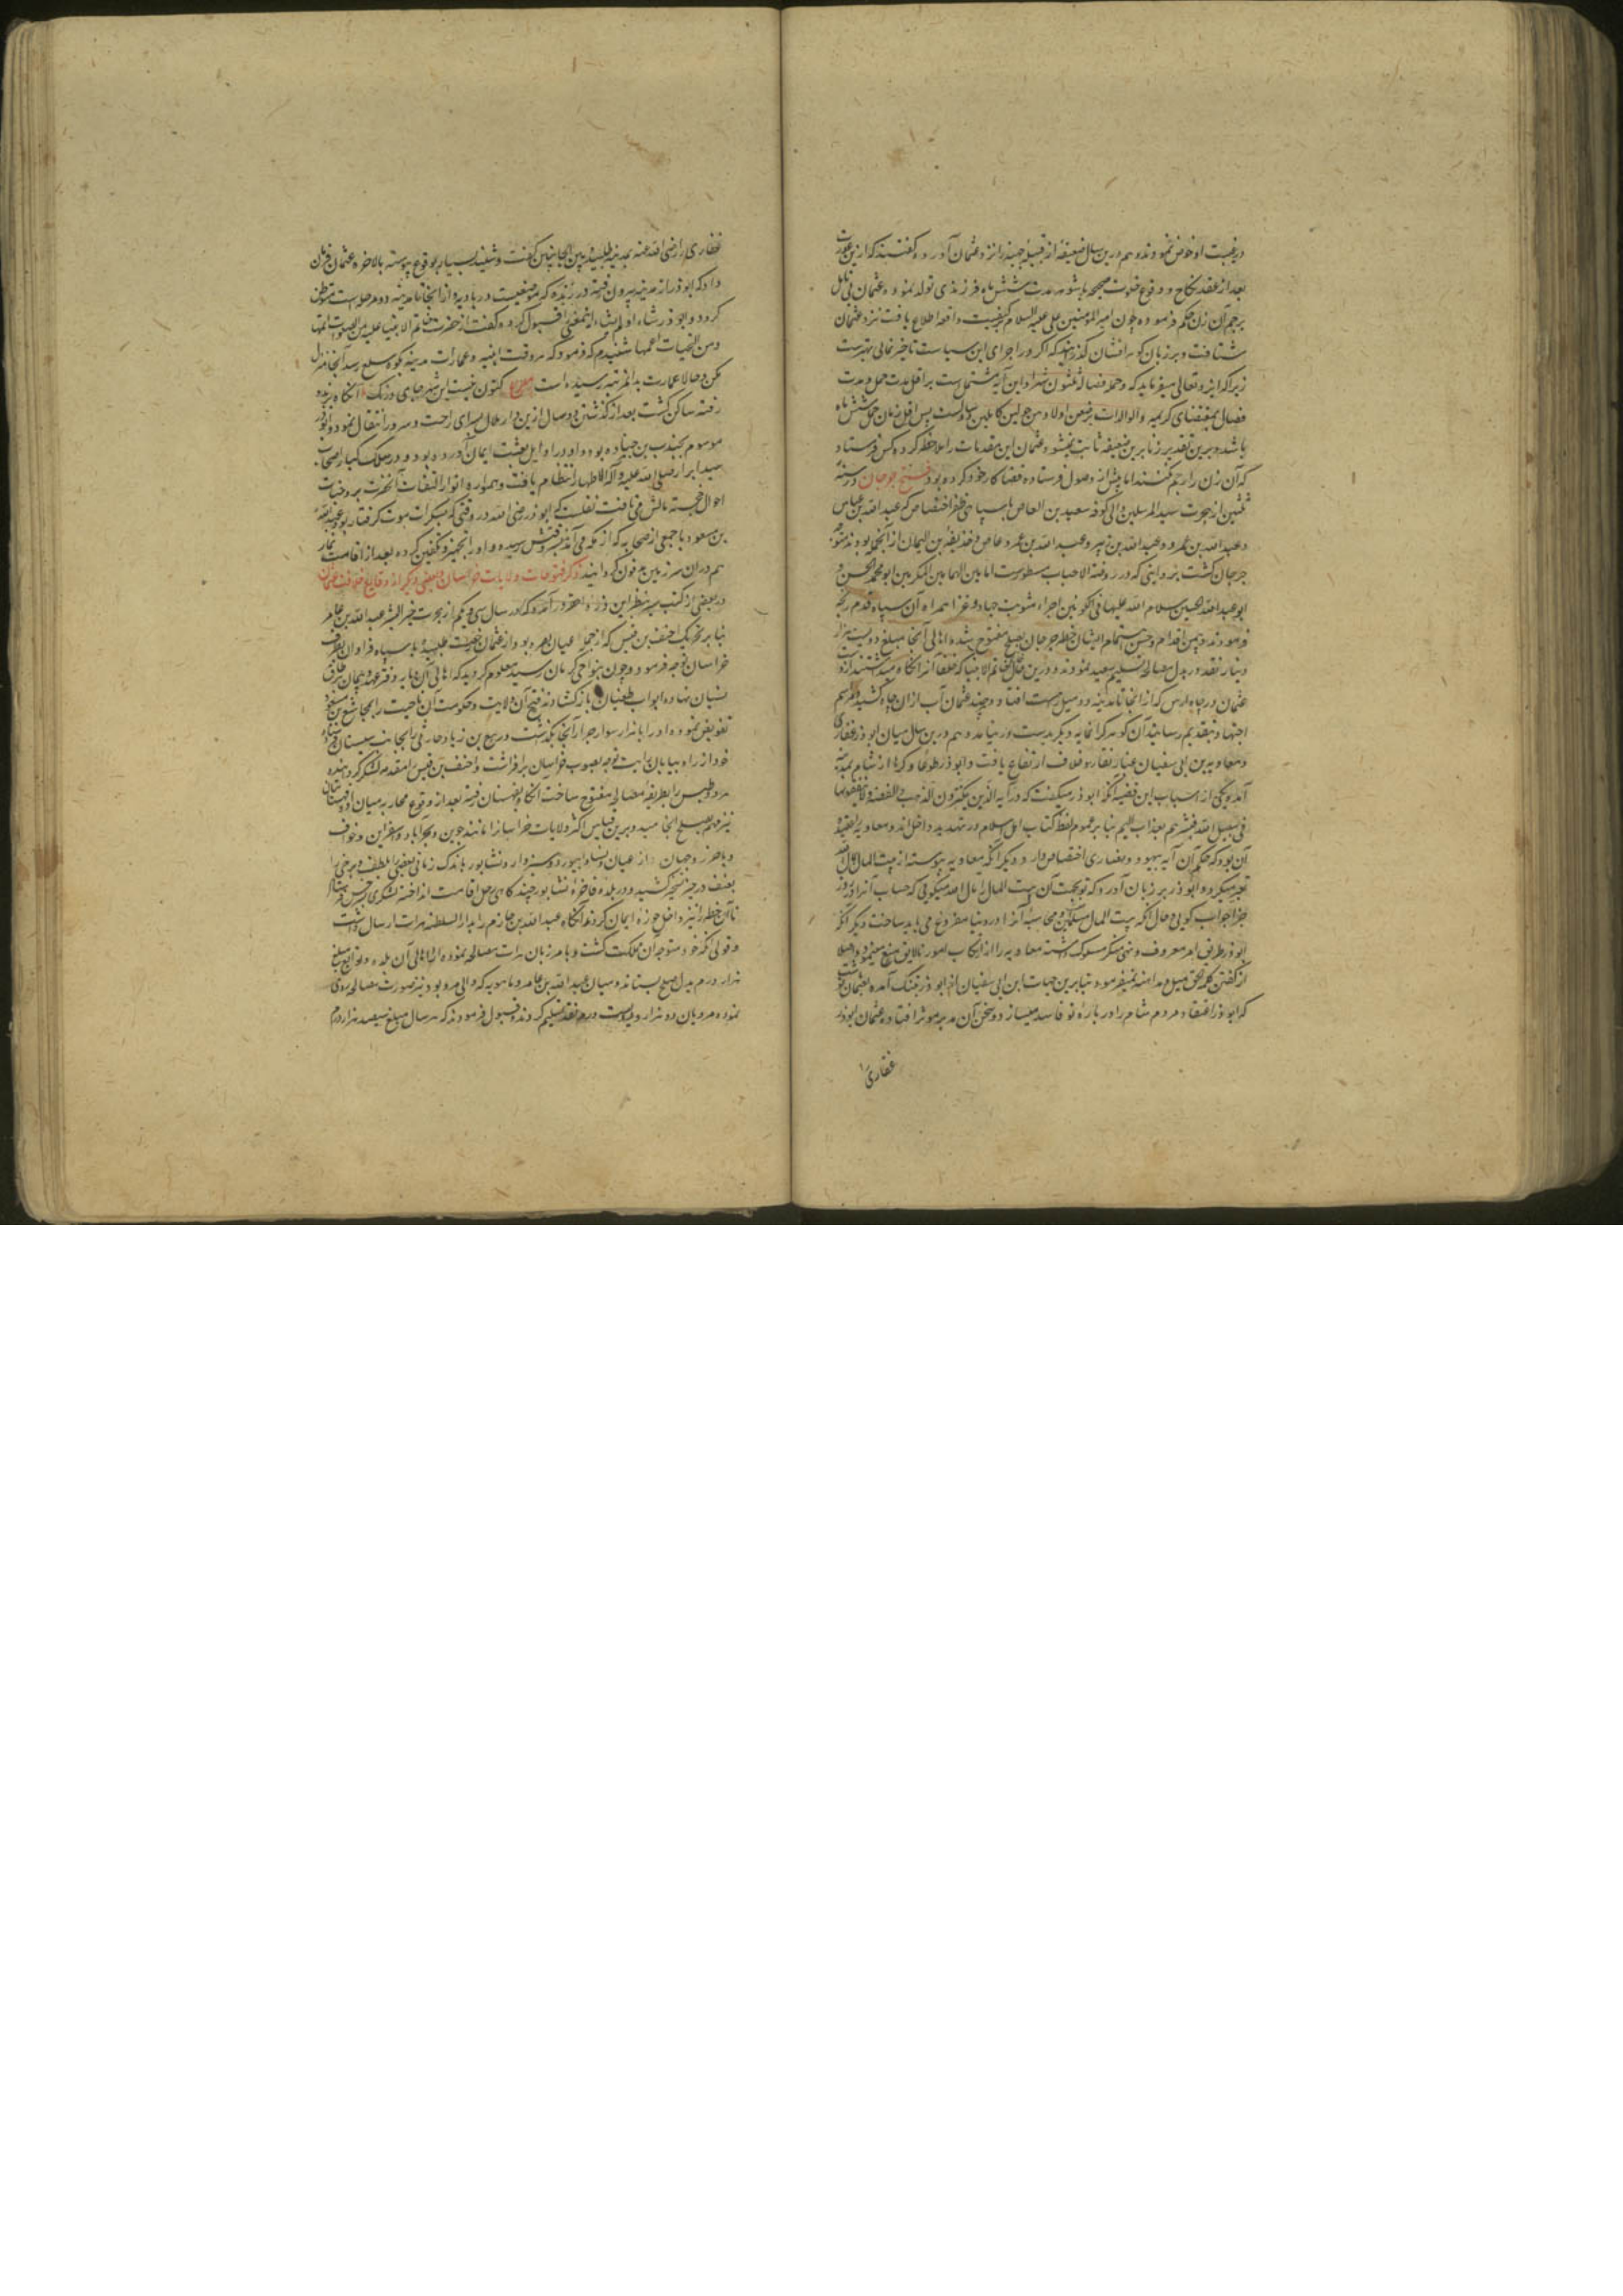 در غیبت او خوض نمودند و هم درین سال ضعیفهٔ از قبیلهٔ جهینه را نزد عثمان آوردند و گفتند که ازین عورت
بعد از عقد نکاح و وقوع خلوت صحیحه با شوهر مدت شش ماه فرزندی تولد نموده و عثمان فی تامل
برجم آن زن حکم فرموده چون امیر المؤمنین علی علیه السلام بر کیفیت واقعه اطلاع یافت نزد عثمان
شتافت و بر زبان گوهر افشان گذرانید که اگر در اجرای این سیاست تاخیر نمائی بهترست
زیرا که ایزد تعالی میفرماید که و حمله و فصاله ثلثون شهرا و این آیه مشتمل است بر اقل مدت حمل و مدت
فصال بمقتضای کریمه والوالدات یرضعن اولادهن حولین کاملین دو سالست پس اقل زمان حمل شش ماه
باشد و برین تقدیر زنا برین ضعیفه ثابت نمیشود عثمان این مقدمات را ملاحظه کرده کس فرستاد
که آن زن را رجم نکنند اما پیش از وصول فرستاده قضا کار خود کرده بود فتح جرجان در سنهٔ
ثلثین از هجرت سید المرسلین والی کوفه سعید بن العاص با سپاهی ظفر اختصاص که عبد الله بن عباس
و عبد الله بن عمر و عبد الله بن زبیر و عبد الله بن عمرو عاص و حذیفة بن الیمان از آنجمله بودند متوجه
جرجان گشت و بروایتی که در روضة الاحباب مسطورست امامین الهمامین المکرمین ابو محمد الحسن و
ابو عبد الله الحسین سلام الله علیهما فی الکونین اجراء مثوبت جهاد و غزا همراه آن سپاه قدم رنجه
فرمودند و بیمن اقدام و حسن اهتمام ایشان خطهٔ جرجان بصلح مفتوح شده اهالی آنجا مبلغ دویست هزار
دینار نقد در بدل مصالحه تسلیم سعید نمودند و درین سال خاتم الانبیا که خلفا آنرا نگاه میداشتند از دست
عثمان در چاه اریس که از آنجا تا مدینه دو میل است افتاد و هرچند عثمان آب از آن چاه کشیده مراسم
اجتهاد بتقدیم رسانید آن گوهر گرانمایه دیگر بدست در نیامد و هم درین سال میان ابوذر غفاری
و معاویة بن ابی سفیان غبار نقار و خلاف ارتفاع یافت و ابوذر طوعا و کرها از شام بمدینه
آمد و یکی از اسباب این قضیه آنکه ابوذر میگفت که در آیه الذین یکنزون الذهب و الفضة و لا ینفقونها
فی سبیل الله فبشرهم بعذاب الیم بنا بر عموم لفظ کتاب اهل اسلام در تهدید داخل اند و معاویه را عقیده
آن بود که حکم آن آیه بیهود و نصاری اختصاص دارد و دیگر آنکه معاویه پیوسته از بیت المال بمال الله
تعبیر میکرد و ابوذر بر زبان آورد که تو بجهت آن بیت المال را مال الله میگوئی که حساب آنرا در روز
جزا جواب گوئی و حال آنکه بیت المال مسلمین و محاسبهٔ آنرا در دنیا مفروغ می باید ساخت و دیگر آنکه
ابوذر طریق امر معروف و نهی منکر مسلوک داشته معاویه را از ارتکاب امور نالایق منع مینمود و اصلا
از گفتن کلمه حق میل و مداهنه نمیفرمود بنابرین جهات ابن ابی سفیان از ابوذر بتنک آمده بعثمان نوشت
که ابوذر اعتقاد مردم شام را در بارهٔ تو فاسد میسازد و سخن آن مدبر موثر افتاده عثمان ابوذر
غفاری
غفاری را رضی الله عنه بمدینه طلبید و بین الجانبین گفت و شنید بسیار بوقوع پیوسته بالاخره عثمان فرمان
داد که ابوذر از مدینه بیرون رفته در ربذه که موضعیست در بادیه و از آنجا تا مدینه دو مرحله است متوطن
گردد و ابوذر شاء او لم یشاء این معنی را قبول کرده گفت از حضرت خاتم الانبیا علیه من الصلوات اتمها
و من التحیات اعمها شنیدم که فرمود که هر وقت ابنیه و عمارات مدینه بکوه سلع رسد آنجا منزل
مکن و حالا عمارت بدانمرتبه رسیده است مصراع کنون نیست این شهر جای درنگ آنگاه بربذه
رفته ساکن گشت بعد از گذشتن دو سال ازین دار ملال بسرای راحت و سرور انتقال نمود و ابوذر
موسوم بجندب بن جناده بود و او در اوایل بعثت ایمان آورده بود و در سلک کبار اصحاب
سید ابرار صلی الله علیه و آله الاطهار انتظام یافت و همواره انوار التفات آنحضرت بر وجنات
احوال خجسته مآلش می تافت نقلست که ابوذر رضی الله در وقتی که بسکرات موت گرفتار بود عبد الله
بن مسعود با جمعی از صحابه که از مکه می آمدند بوقتش رسیده و او را تجهیز و تکفین کرده بعد از اقامت نماز
هم در آن سرزمین مدفون گردانیدند ذکر فتوحات ولایات خراسان و بعضی دیگر از وقایع خلافت عثمان
در بعضی از کتب سیر بنظر این ذره احقر در آمده که در سال سی و یکم از هجرت خیر البشر عبد الله بن عامر
بنا بر تحریک احنف بن قیس که از جملهٔ اعیان بصره بود از عثمان رخصت طلبیده با سپاه فراوان بطرف
خراسان توجه فرمود و چون بنواحی کرمان رسید معلوم گردید که اهالی آن دیار دفتر عهد و پیمان بر طاق
نسیان نهاده ابواب طغیان باز گشادند فتح آن ولایت و حکومت آن ناحیت را بمجاشع بن مسعود
تفویض نموده او را با هزار سوار جرار آنجا بگذاشت و ربیع بن زیاد حارثی را بجانب سیستان فرستاده
خود از راه بیابان رایت توجه بصوب خراسان برافراشت و احنف بن قیس را مقدمه لشکر گردانیده
مرد و طبس را بطریقهٔ مصالحه مفتوح ساخت آنگاه بقهستان رفته بعد از وقوع محاربه میان او و قهستان
نیز مهم بصلح انجامید و برین قیاس اکثر ولایات خراسان را مانند جوین و بحرآباد و اسفراین و خواف
و باخرز و جهان و ارغیان و نسا و ابیورد و سبزوار و نشابور باندک زمانی بعضی را بلطف و برخی را
بعنف در حیز تسخیر کشید و در بلده فاخرهٔ نشابور چند گاهی رحل اقامت انداخته لشکری بسرخس فرستاد
تا آن خطه را نیز داخل حوزه ایمان کردند آنگاه عبد الله بن خازم را بدار السلطنه هرات ارسال داشت
و قولی آنکه خود متوجه آن مملکت گشت و با مرزبان هرات مصالحه نموده از اهالی آن بلده و توابع مبلغ
هزار درم بدل صلح بستاند و میان عبد الله بن عامر و ماهویه که والی مرو بود نیز صورت مصالحه روی
نموده مرویان دو هزار و دویست درم نقد تسلیم کردند و قبول فرمودند که هر سال مبلغ سیصد هزار درم